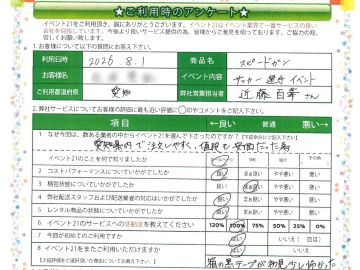 ★ご利用時のアンケート★
イベント21をご利用頂き、誠にありがとうございます。イベント21はイベント業界で一番サービスの良い
会社を目指しています。今後より良いサービス提供の為、皆様からご意見を伺っております。ご協力の程、
宜しくお願い致します。
1.お客様について以下の質問にお答え下さい。
利用日時 2025.8.1 商品名 スピードガン
お名前 イベント内容 サッカー選手イベント
ご利用都道府県 愛知 弊社営業担当者 近藤百華さん
2.弊社サービスについてお客様の評価に最も近い評価に○印やコメントをご記入下さい。
項目 ←良い 普通 悪い→
1 なぜ今回、数ある業者の中からイベント21を選んで下さったのですか?
愛知県内で注文しやすく、値段も安価だった為
イベント21のことを何で知りましたか SNS 紹介 その他
2 コストパフォーマンスについていかがでしたか 良い まぁ良い 普通 やや悪い 悪い
3 梱包状態についていかがでしたか 良い まぁ良い 普通 やや悪い 悪い
4 弊社配送スタッフおよび配送業者の対応はいかがでしたか 良い まぁ良い 普通 やや悪い 悪い
5 レンタル商品の状態についていかがでしたか 良い まぁ良い 普通 やや悪い 悪い
6 イベント21のサービスへの感動度を教えてください 120% 100% 75% 50% 25% 0%
7 今回が初めてのご利用ですか はい いいえ( 回目)
8 イベント21をまたご利用いただけますか はい いいえ
箱の黒テープが初見少し怖かった